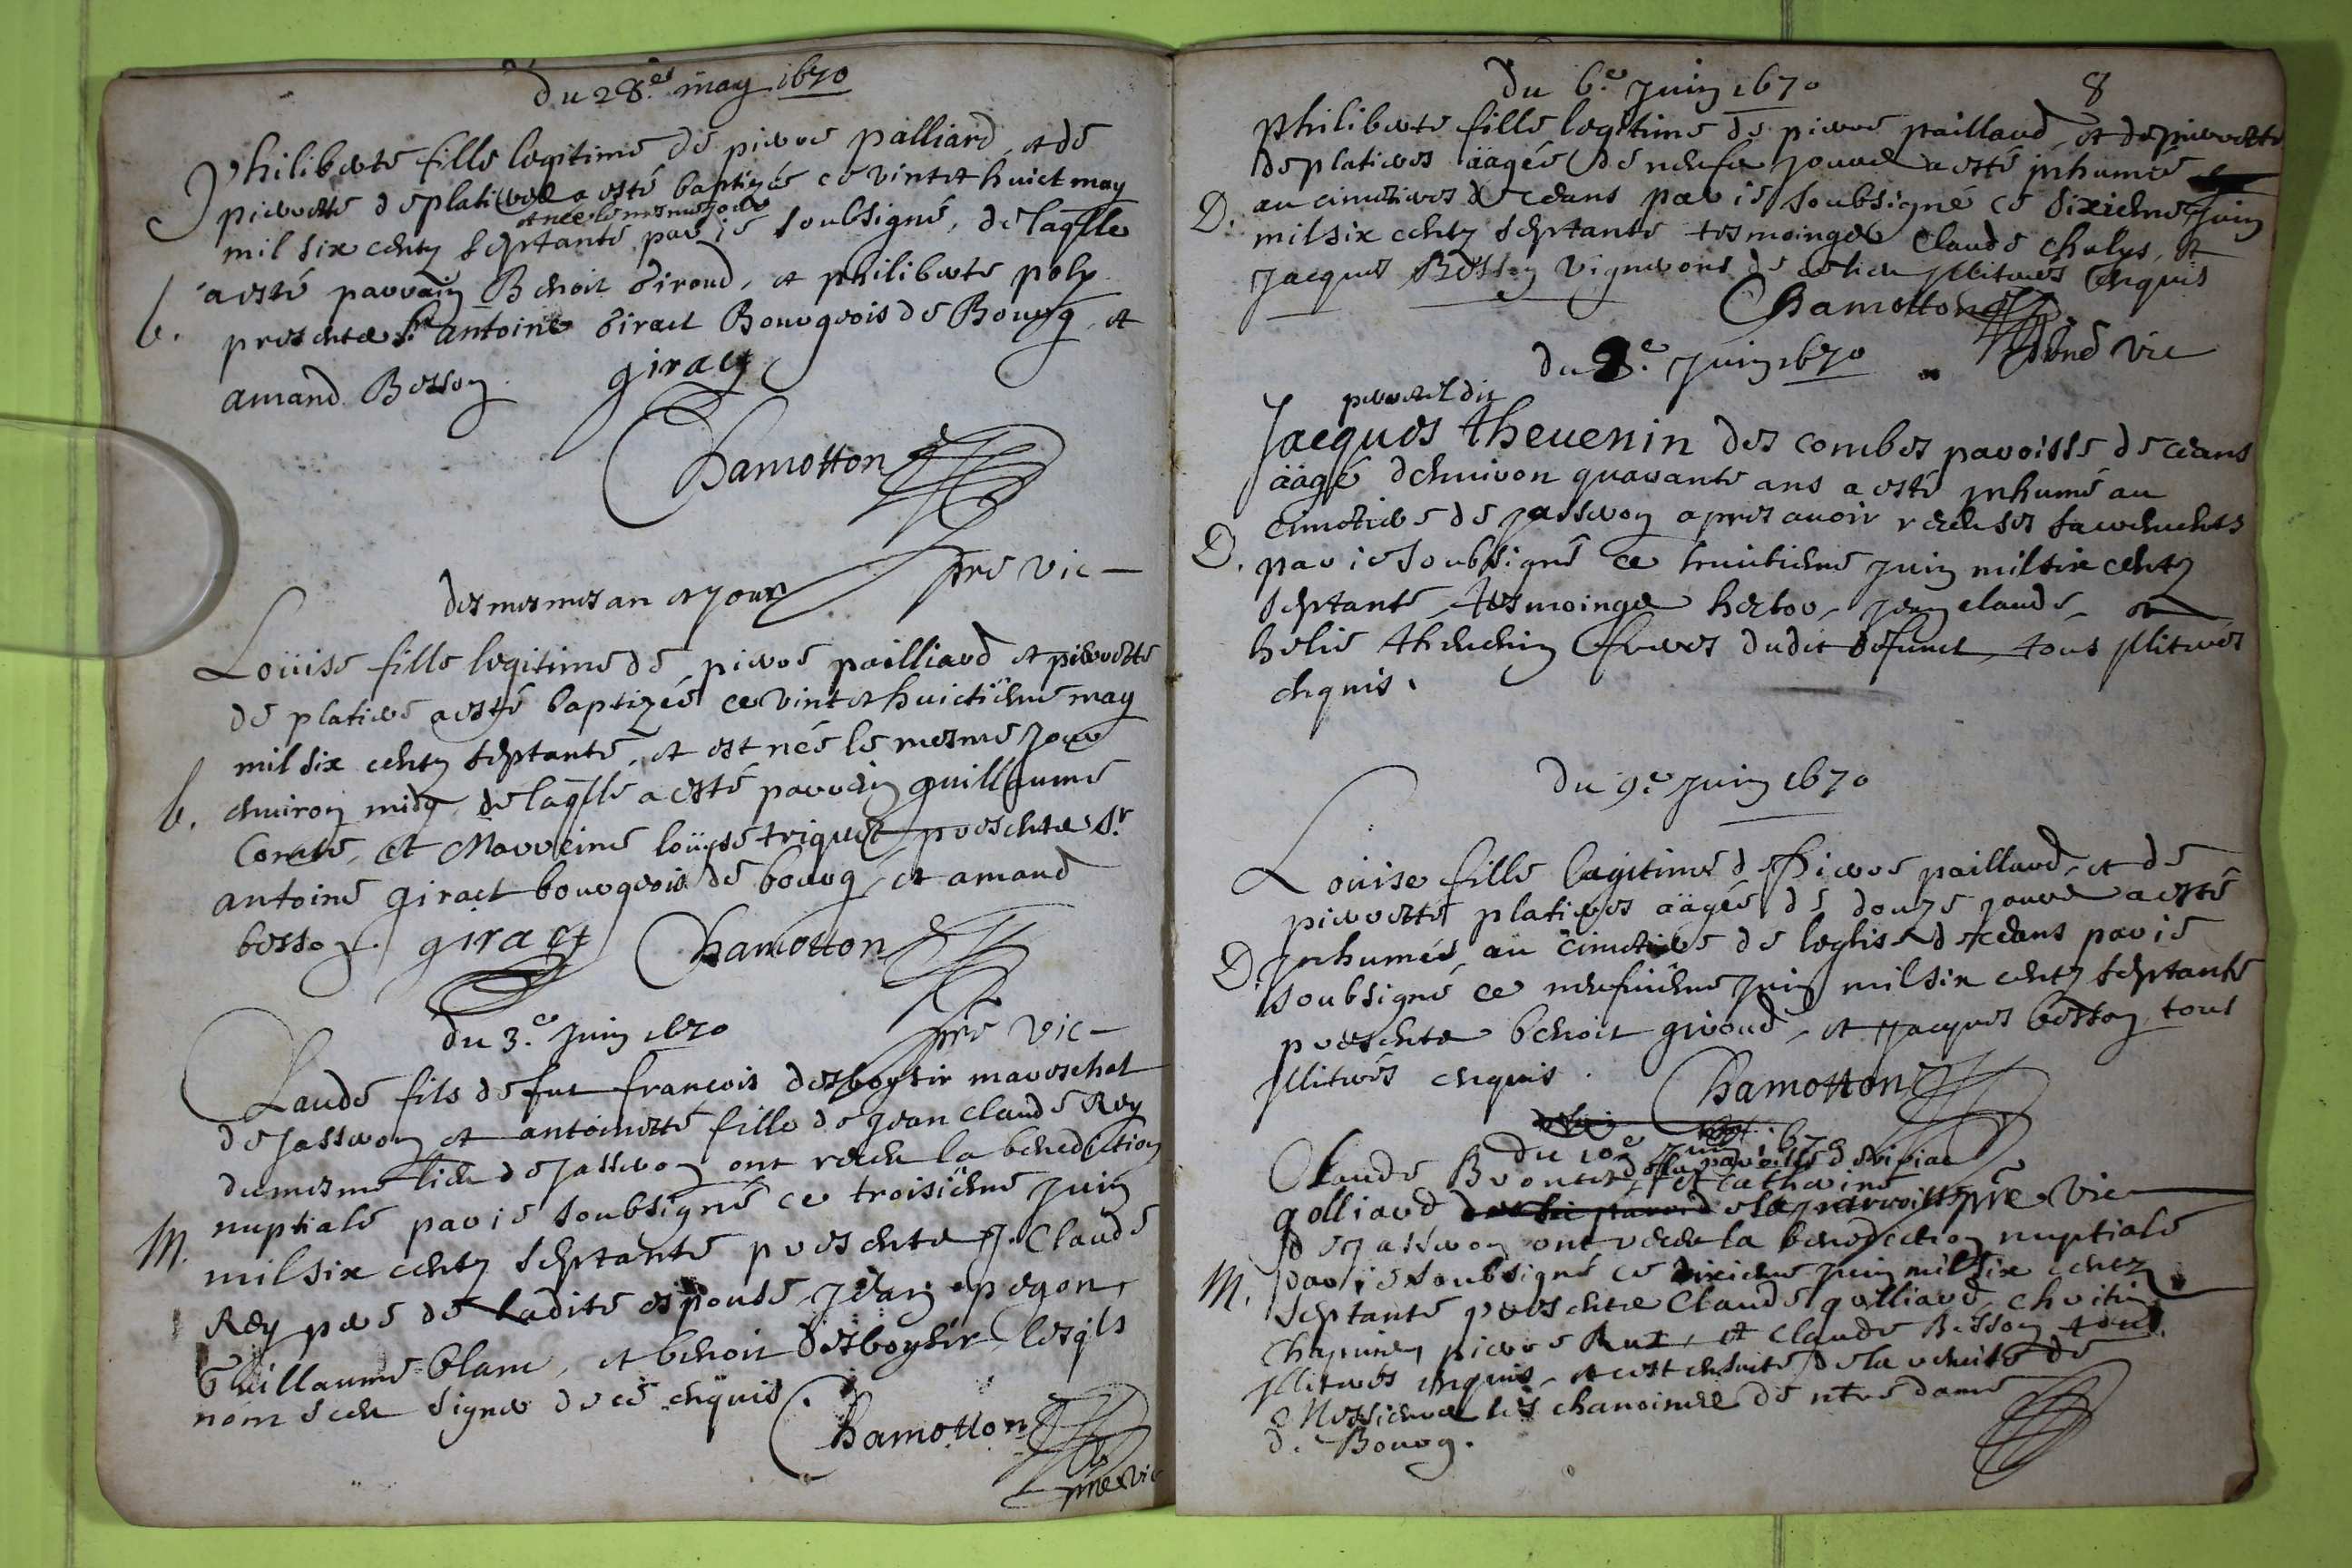 du 28.e may 1670
Philiberte fille legitime de pierre palliard, et de
pierrette deplatieres a esté baptizée ce vint et huict may
et née le mesme jour
mil six centz septante par je soubsigné, de laqlle
a esté parrain Benoit Giroud, et philiberte poly
b.
presentes Sr. antoine Giract Bourgeois de Bourg, et
amand Besson giract
Chamotton
pre vic
des mesmes an et jour
Loüise fille legitime de pierre pailliard et pierrette
de platiere a esté baptizée ce vint et huictieme may
mil six centz septante, et est née le mesme jour
b. environ midy, de laqlle a esté parrain guillaume
et Marreine loüyse triquet presentes Sr.
antoine giract bourgeois de bourg, et amand
besson. giract Chamotton
pre vic
du 3.e Juin 1670
Claude fils de fut francois desboysir mareschal
de Jasseron et antoinette fille de Jean Claude Rey
du mesme lieu de Jasseron ont receu la benediction
nuptiale par je soubsigné ce troisieme Juin
M. mil six centz septante presente J. Claude
Rey pere de ladite espouse, Jean
Guillaume blanc, et benoit Desboysir lesqls
nom sceu signer de ce enquis.
Chamotton
pre vic
8
du 6.e Juin 1670
Philiberte fille legitime de pierre paillard, et de pierrette
deplatieres äagée de neufz jours a esté inhumée
D. au cimetiere de ceans par je soubsigné ce sixieme Juin
mil six centz septante tesmoinges Claude chalys, et
Jacques Besson vignerons de ce lieu illitrés enquis
Chamotton
pre vic
du 8.e Juin 1670
perrotel dit
Jacques theuenin des combes paroisse de ceans
äagé denuiron quarante ans a esté inhumé au
cimetiere de Jasseron apres auoir receu ses sacrements
D. par je soubsigné ce huictieme Juin mil six centz
septante, tesmoinges hector, Jean claude, et
helie theuenin freres dudit defunct, tous illitrés
enquis.
du 9.e Juin 1670
Loüise fille legitime de Pierre paillard, et de
pierrette platieres äagée de douze jours a esté
D. Inhumée au cimetiere de leglise de ceans par je
soubsigné ce neufuieme Juin mil six centz septante
presente benoit giroud, et Jacques besson, tous
illitrés enquis.
Chamotton
du 10.e Juin 1670
Claude de la paroisse de
et Catherine
golliard de la paroisse pre vic
de Jasseron ont receu la benediction nuptiale
M. par je soubsigné ce dixieme Juin mil six centz
septante presente Claude golliard,
pierre et Claude Besson tous
illitrés enquis, et cest ensuite de la de
Messieurs les chanoines de ntre dame
de Bourg.